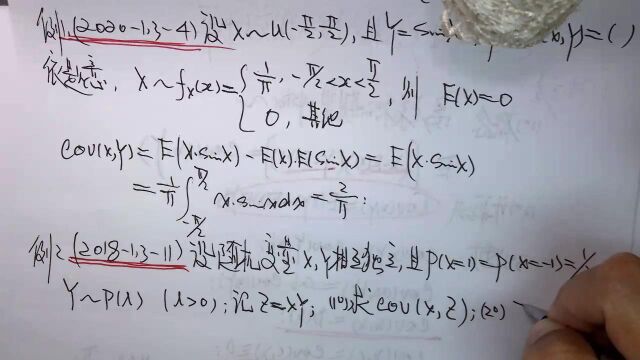 例1.(2020-1,3-4)设X~U(-π/2,π/2),且Y=sinX, x,y)=( )
依题意, X~f_X(x)={1/π, -π/2<x<π/2, 则 E(X)=0
0, 其他
cov(X,Y)=E(X·sinX)-E(X)·E(sinX)=E(X·sinX)
=1/π∫_{-π/2}^{π/2} x·sinxdx=2/π;
例2(2018-1,3-11)设随机变量X,Y相互独立,且P(X=1)=P(X=-1)=1/
Y~P(λ) (λ>0);记Z=XY; (1°)求cov(X,Z);(2°)